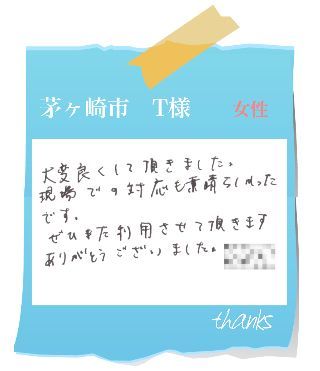 茅ヶ崎市 T様 女性
大変良くして頂きました。
現場での対応も素晴らしかった
です。
ぜひまた利用させて頂きます
ありがとうございました。
thanks